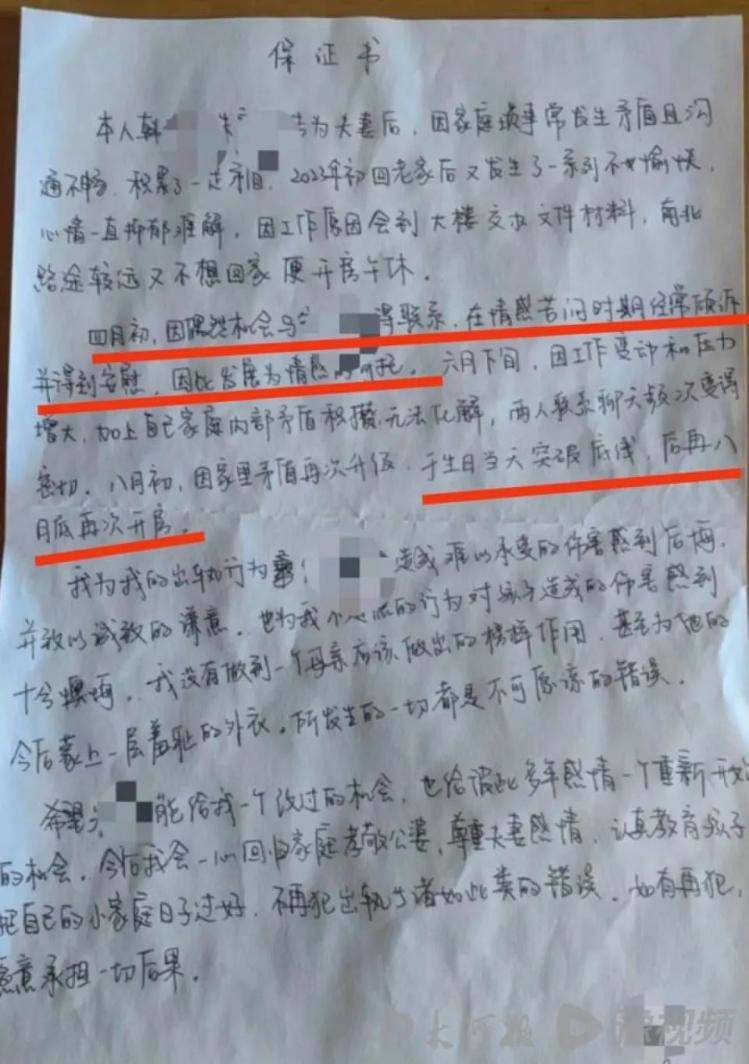 保证书
本人韩 朱 为夫妻后，因家庭琐事常发生矛盾且沟
通不畅，积累了一定矛盾，2023年初回老家后又发生了一系列不愉快，
心情一直抑郁难解，因工作原因会到大楼交办文件材料，南北
路途较远又不想回家便开房午休。
四月初，因偶然机会与 得联系，在情感苦闷时期经常倾诉
并得到安慰，因此发展为情感 托。六月下旬，因工作变动和压力
增大，加上自己家庭内部矛盾积攒无法化解，两人联系聊天频次变得
密切。八月初，因家里矛盾再次升级，于生日当天突破底线，后再八
月底再次开房。
我为我的出轨行为 造成难以承受的伤害感到后悔，
并致以诚挚的歉意。也为我 的行为对孩子造成的伤害感到
十分懊悔，我没有做到一个母亲应该做出的榜样作用，甚至为他的
今后蒙上一层羞耻的外衣。所发生的一切都是不可原谅的错误。
希望 能给我一个改过的机会，也给彼此多年感情一个重新开始
的机会，今后我会一心回归家庭孝敬公婆，尊重夫妻感情，认真教育孩子
把自己的小家庭日子过好，不再犯出轨 诸如此类的错误，如有再犯，
愿意承担一切后果。
大河报 豫视频